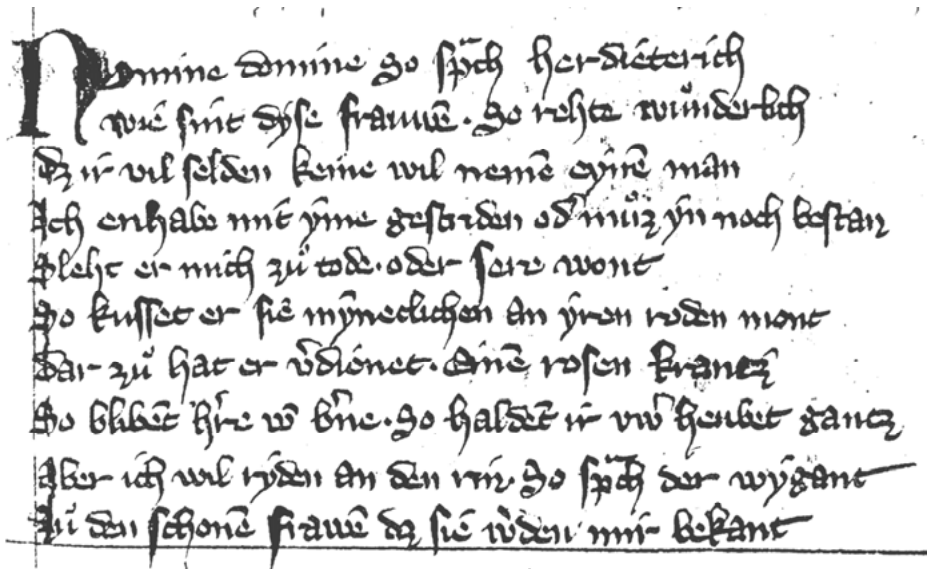 Nomine domine so sp̄ch her dieterich
wie sint dyse frauwē · So rehte wůnderlich
dz ir vil selden keine wil nemē eynē man
Ich enhabe mit yme gestriden od' můz yn noch bestan
Sleht er mich zů tode · oder sere wont
So kusset er sie mynneclichen an yren roden mont
dar zů hat er v̄dienet · Einē rosen krantz
So blibēt h're vō b'ne · So haldēt ir vw' heubet gantz
Aber ich wil ryden an den rin · So sp̄ch der wygant
Zů den schonē frawē dz sie w'den mir bekant